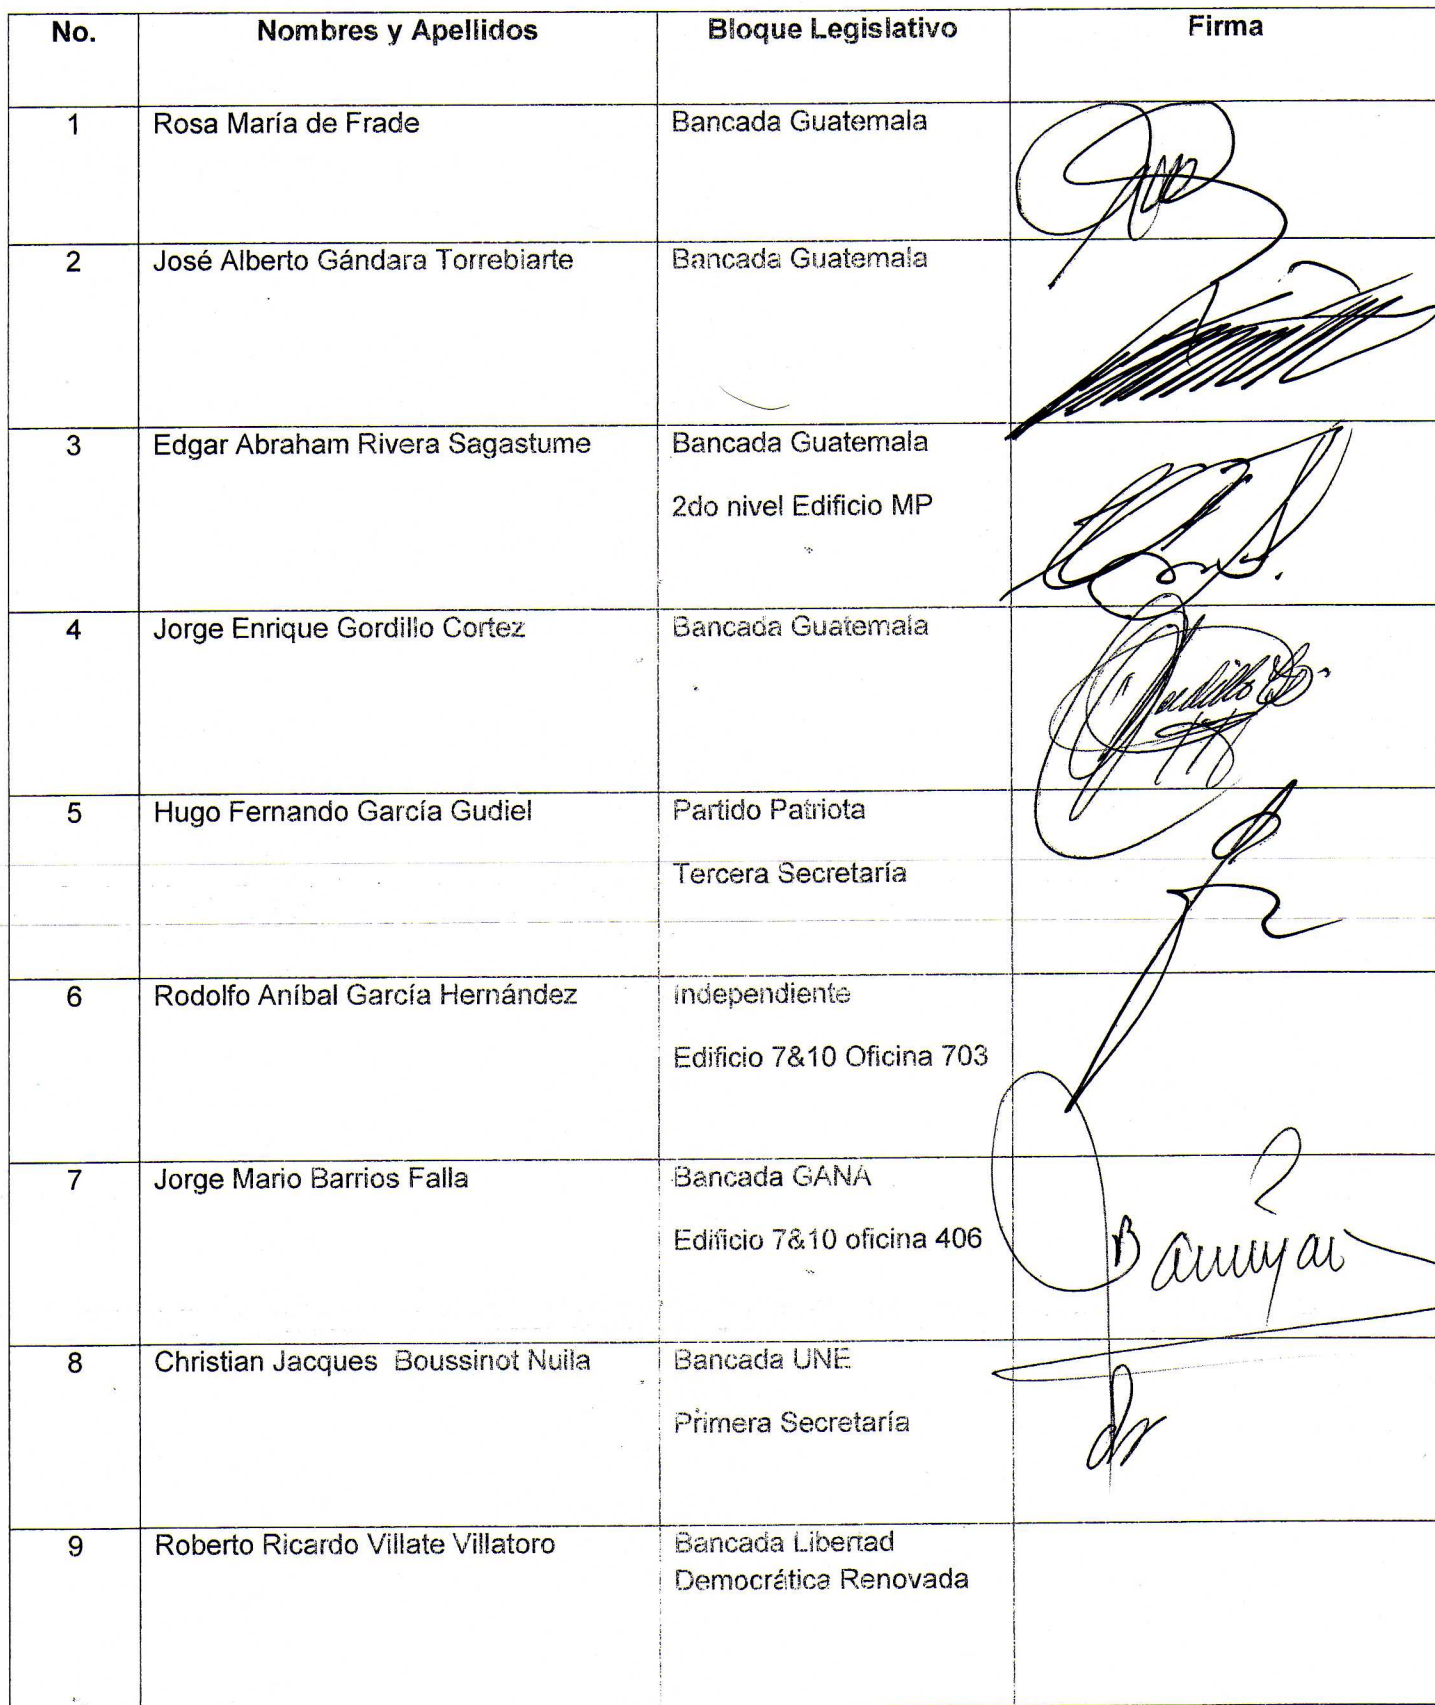 No. Nombres y Apellidos Bloque Legislativo Firma
1 Rosa María de Frade Bancada Guatemala
2 José Alberto Gándara Torrebiarte Bancada Guatemala
3 Edgar Abraham Rivera Sagastume Bancada Guatemala
2do nivel Edificio MP
4 Jorge Enrique Gordillo Cortez Bancada Guatemala
5 Hugo Fernando García Gudiel Partido Patriota
Tercera Secretaría
6 Rodolfo Aníbal García Hernández Independiente
Edificio 7&10 Oficina 703
7 Jorge Mario Barrios Falla Bancada GANA
Edificio 7&10 oficina 406
8 Christian Jacques Boussinot Nuila Bancada UNE
Primera Secretaría
9 Roberto Ricardo Villate Villatoro Bancada Libertad
Democrática Renovada